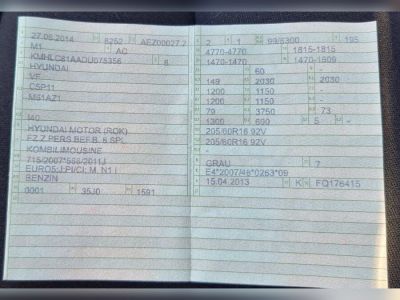 27.06.2014 8252 AEZ00027 2
M1 AC
KMHLC81AADU075356 6
HYUNDAI
VF
C5P11
M51AZ1
I40
HYUNDAI MOTOR (ROK)
FZ.Z.PERS.BEF.B. 8 SPL.
KOMBILIMOUSINE
715/2007*566/2011J
EURO5;J;PI/CI; M, N1 I
BENZIN
0001 35J0 1591
2 1 99/6300 195
4770-4770 1815-1815
1470-1470 1470-1609
- 60 -
149 2030 2030
1200 1150
1200 1150
79 3750 73
1300 600 5 -
205/60R16 92V
205/60R16 92V
-
GRAU 7
E4*2007/46*0263*09
15.04.2013 K FQ176415